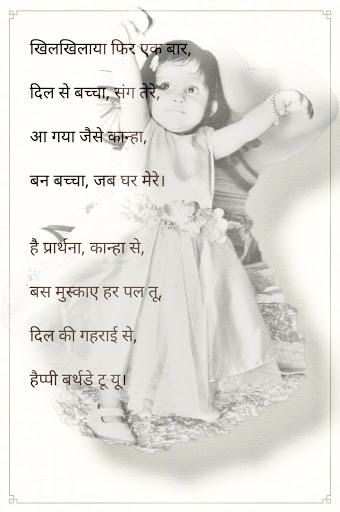 खिलखिलाया फिर एक बार,
दिल से बच्चा, संग तेरे,
आ गया जैसे कान्हा,
बन बच्चा, जब घर मेरे।
है प्रार्थना, कान्हा से,
बस मुस्काए हर पल तू,
दिल की गहराई से,
हैप्पी बर्थडे टू यू।